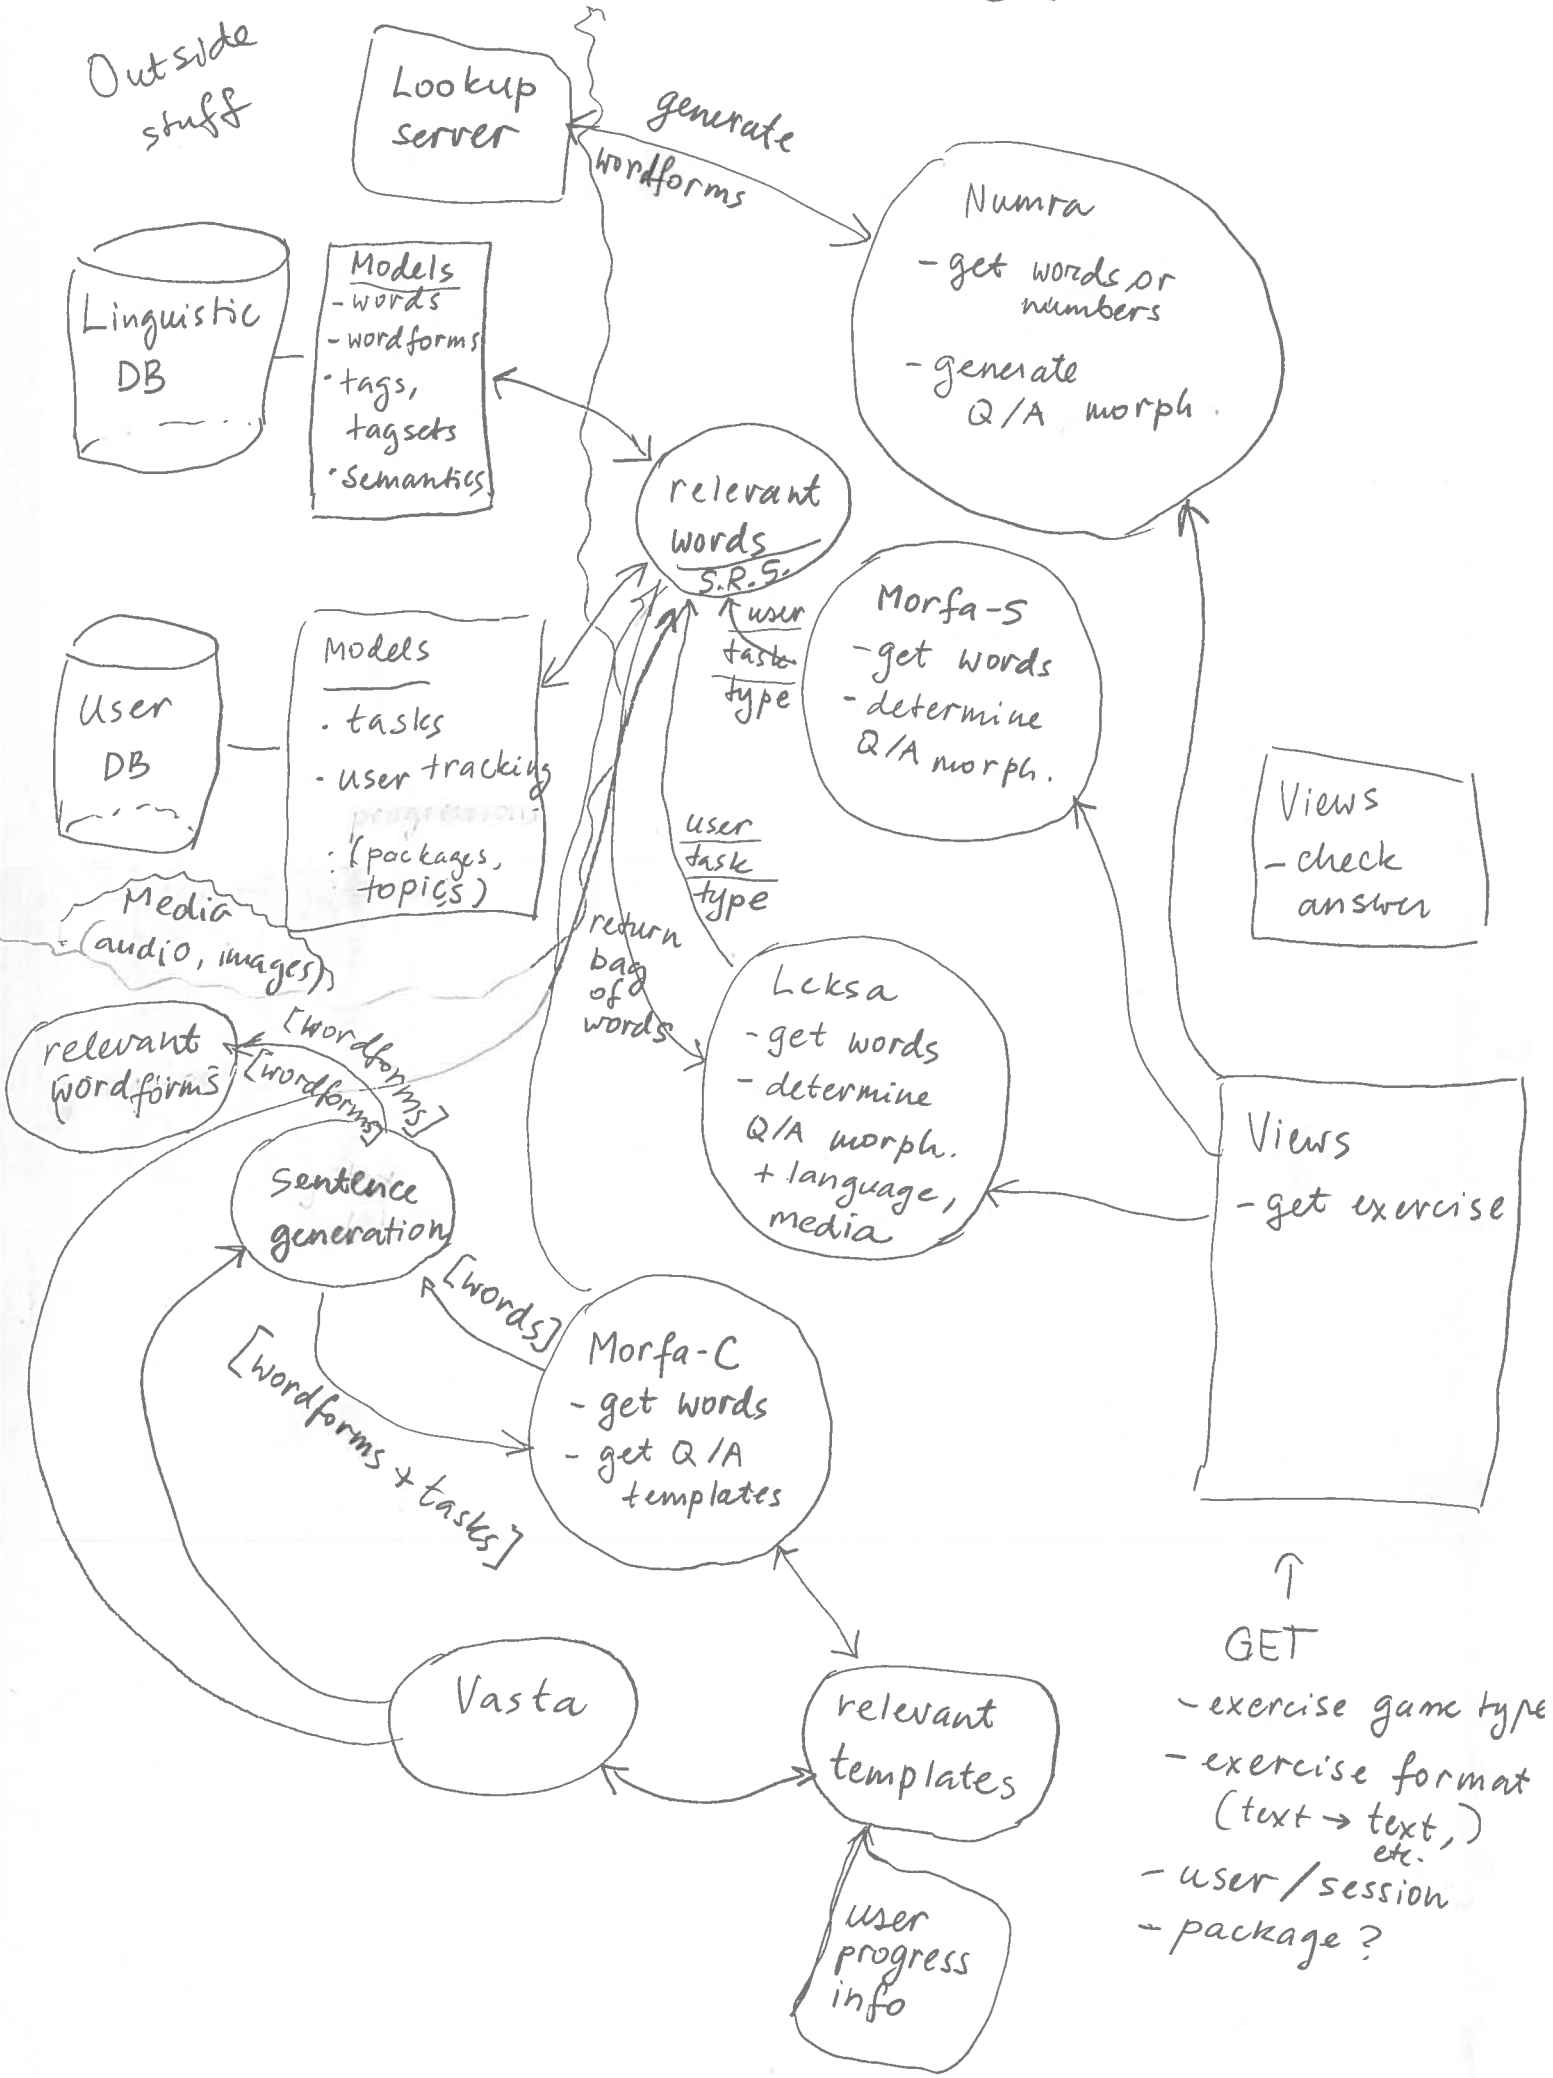 Outside
stuff
Lookup
server
generate
wordforms
Numra
- get words or
numbers
- generate
Q/A morph.
Linguistic
DB
Models
- words
- wordforms
· tags,
tagsets
· semantics
relevant
words
S.R.S.
user
task
type
Morfa-S
- get words
- determine
Q/A morph.
User
DB
Models
· tasks
· user tracking
progressions
· (packages,
topics)
Media
(audio, images)
user
task
type
return
bag
of
words
Views
- check
answer
Leksa
- get words
- determine
Q/A morph.
+ language,
media
relevant
wordforms
[wordforms]
[wordforms]
sentence
generation
[words]
[wordforms + tasks]
Views
- get exercise
Morfa-C
- get words
- get Q/A
templates
Vasta
relevant
templates
user
progress
info
↑
GET
- exercise game type
- exercise format
(text → text,)
etc.
- user/session
- package?